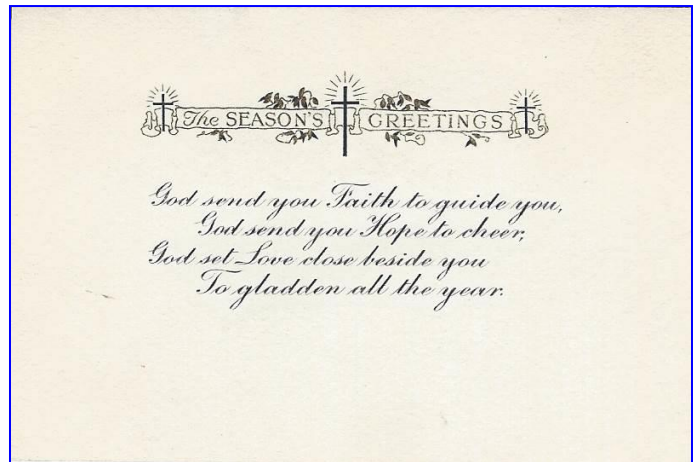 The SEASON'S GREETINGS
God send you Faith to guide you,
God send you Hope to cheer,
God set Love close beside you
To gladden all the year.